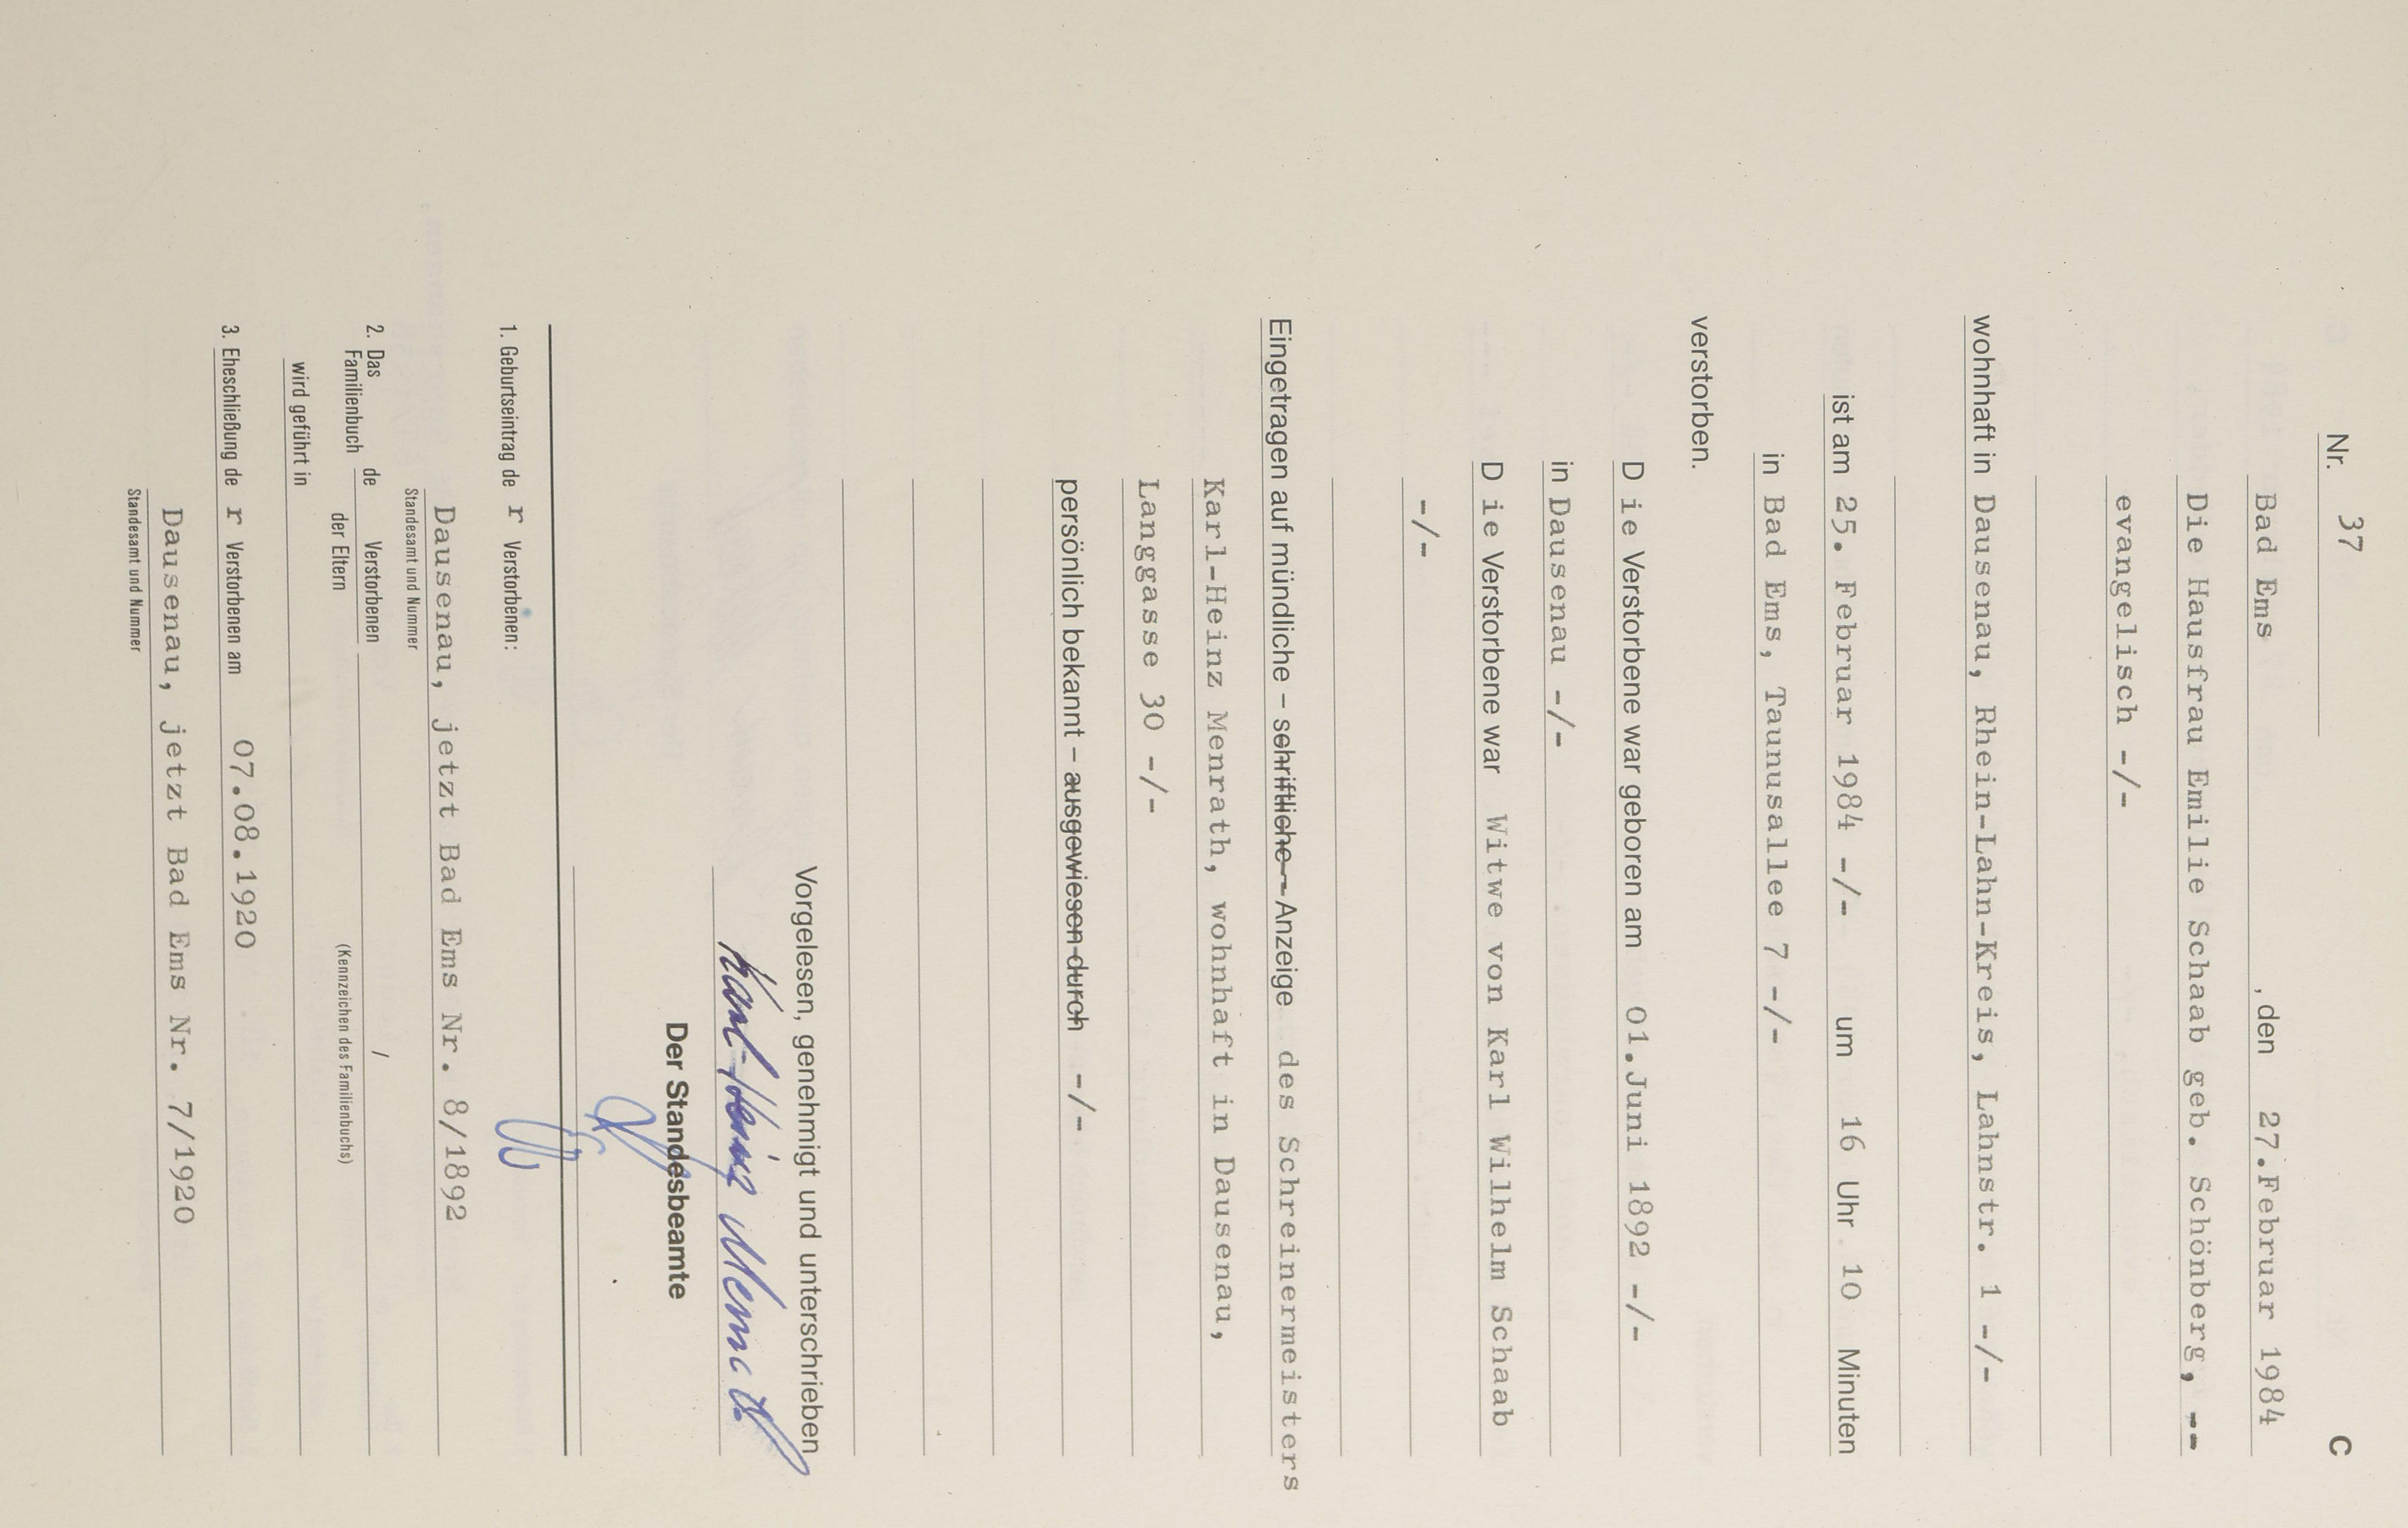 Nr. 37 C
Bad Ems , den 27.Februar 1984
Die Hausfrau Emilie Schaab geb. Schönberg, --
evangelisch -/-
wohnhaft in Dausenau, Rhein-Lahn-Kreis, Lahnstr. 1 -/-
ist am 25. Februar 1984 -/- um 16 Uhr 10 Minuten
in Bad Ems, Taunusallee 7 -/-
verstorben.
D ie Verstorbene war geboren am 01.Juni 1892 -/-
in Dausenau -/-
D ie Verstorbene war Witwe von Karl Wilhelm Schaab
-/-
Eingetragen auf mündliche – schriftliche – Anzeige des Schreinermeisters
Karl-Heinz Menrath, wohnhaft in Dausenau,
Langgasse 30 -/-
persönlich bekannt – ausgewiesen durch -/-
Vorgelesen, genehmigt und unterschrieben
Karl-Heinz
Der Standesbeamte
1. Geburtseintrag de r Verstorbenen:
Dausenau, jetzt Bad Ems Nr. 8/1892
Standesamt und Nummer
2. Das Familienbuch de Verstorbenen /
der Eltern (Kennzeichen des Familienbuchs)
wird geführt in
3. Eheschließung de r Verstorbenen am 07.08.1920
Dausenau, jetzt Bad Ems Nr. 7/1920
Standesamt und Nummer